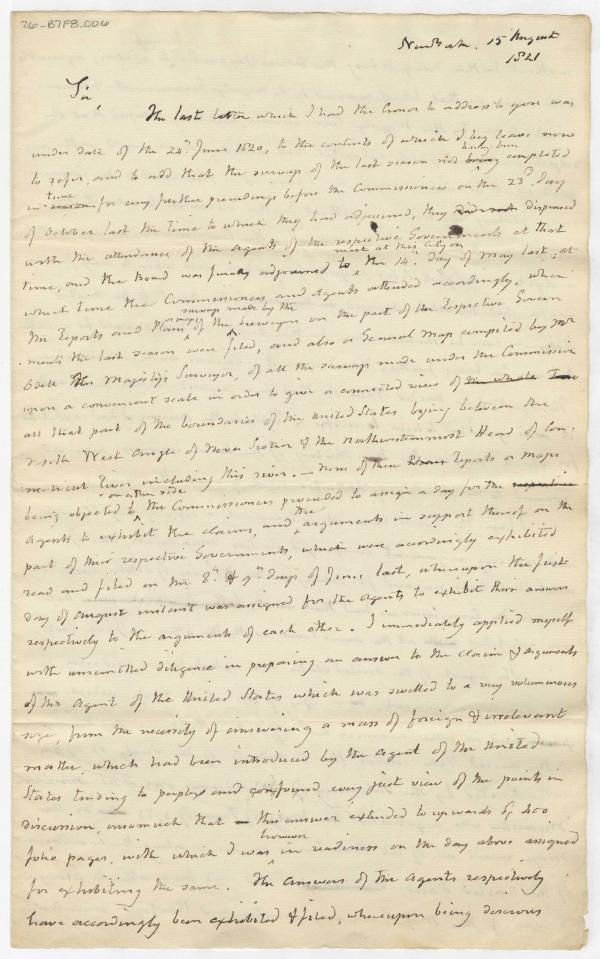 26-B7F8.006
New York. 15 August
1821
Sir,
The last letter which I had the honor to address to you was
under date of the 24th June 1820, to the contents of which I beg leave now
to refer, and to add that the surveys of the last season not having been completed
in time for any further proceedings before the Commissioners on the 23d day
of October last the time to which they had adjourned, they dispensed
with the attendance of the Agents of the respective Governments at that
time, and the Board was finally adjourned to meet at this City on the 14th day of May last, at
which time the Commissioners and Agents attended accordingly, when
the Reports and Plans or maps of the surveys made by the Surveyors on the part of the respective Govern
ments the last season were filed, and also a General map compiled by Mr
Odell His Majesty's Surveyor, of all the surveys made under the Commission
upon a convenient scale in order to give a connected view of the whole
all that part of the boundaries of the United States lying between the
North West Angle of Nova Scotia & the Northwesternmost Head of Con-
necticut River including this river. — None of these Reports or maps
being objected to on either side the Commissioners proceeded to assign a day for the respective
Agents to exhibit the claims, and the arguments in support thereof on the
part of their respective Governments, which were accordingly exhibited
read and filed on the 8th & 9th days of June last, whereupon the first
day of August instant was assigned for the Agents to exhibit their answers
respectively to the arguments of each other. I immediately applied myself
with unremitted diligence in preparing an answer to the claim & arguments
of the Agent of the United States which was swelled to a very voluminous
size, from the necessity of answering a mass of foreign & irrelevant
matter, which had been introduced by the Agent of the United
States tending to perplex and confound every just view of the points in
discussion, insomuch that this answer extended to upwards of 400
folio pages, with which I was however in readiness on the day above assigned
for exhibiting the same. The answers of the Agents respectively
have accordingly been exhibited & filed, whereupon being desirous